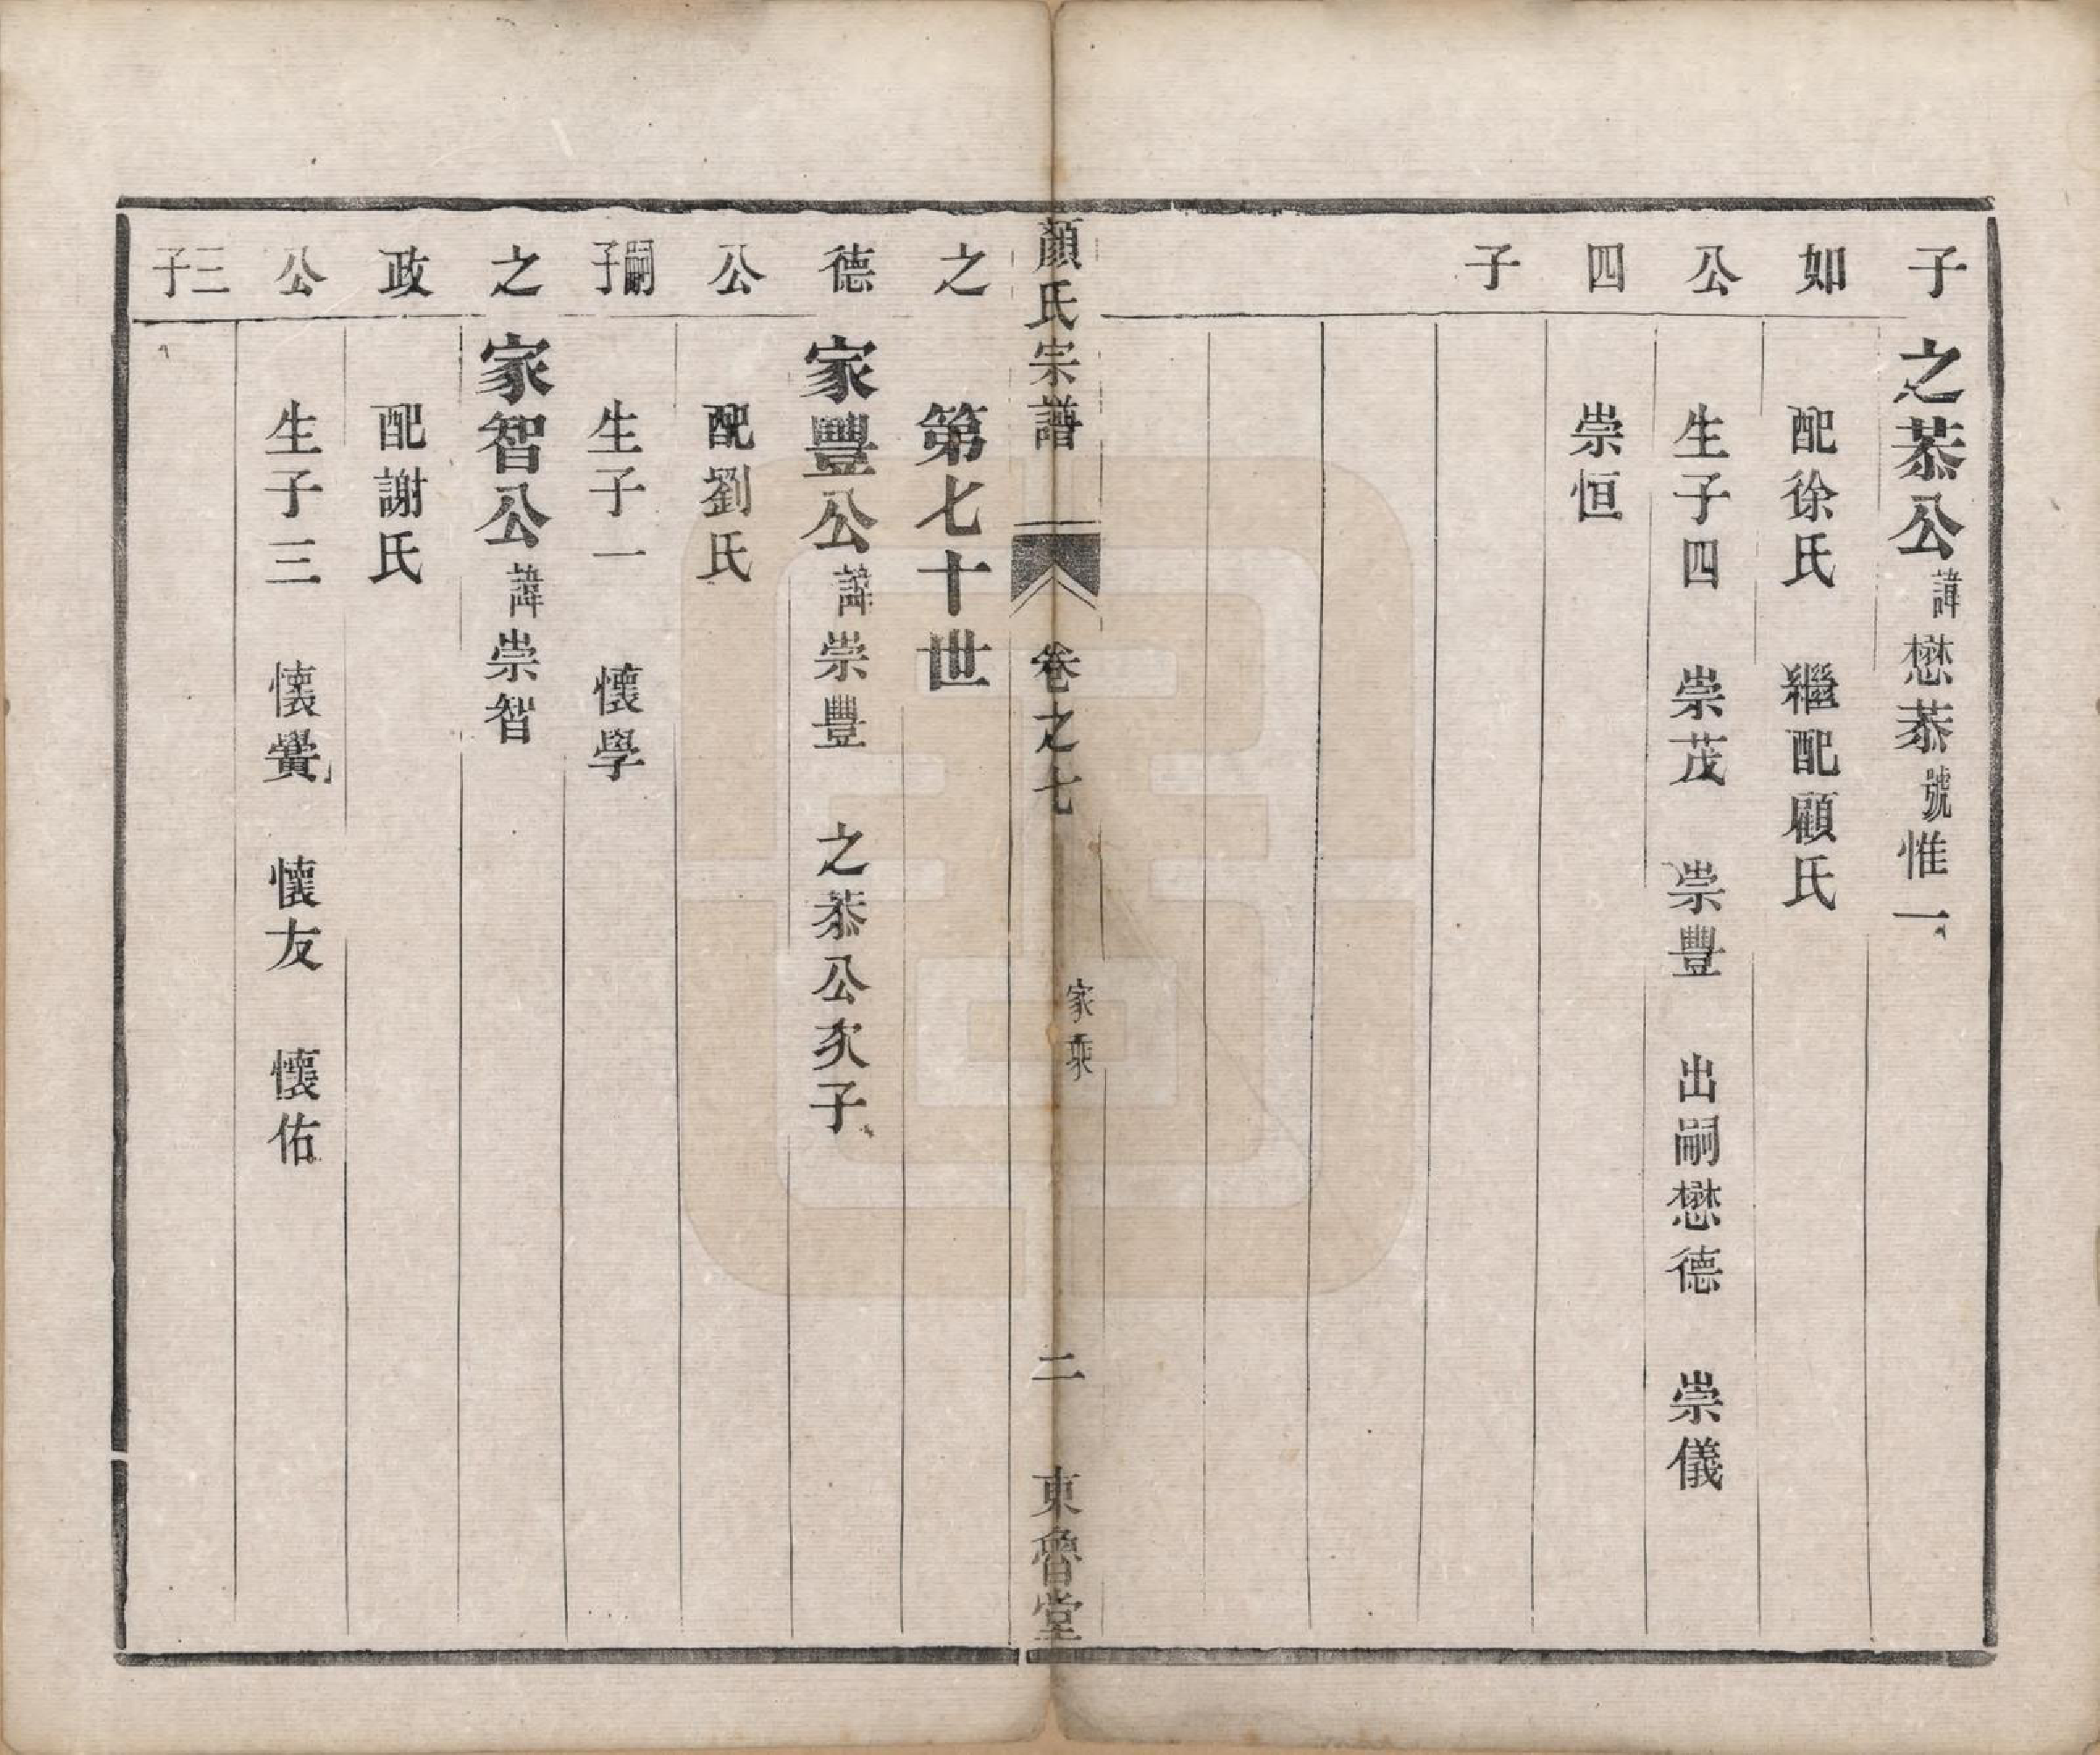 子 之恭公 諱懋恭 號惟一
如 配徐氏 繼配顧氏
公 生子四 崇茂 崇豐 出嗣懋德 崇儀
四 崇恒
子
顏氏宗譜 卷之七 家乘 二 東魯堂
之 第七十世
德 家豐公 諱崇豐 之恭公次子
公 配劉氏
嗣子 生子一 懷學
之 家智公 諱崇智
政 配謝氏
公 生子三 懷黌 懷友 懷佑
三子